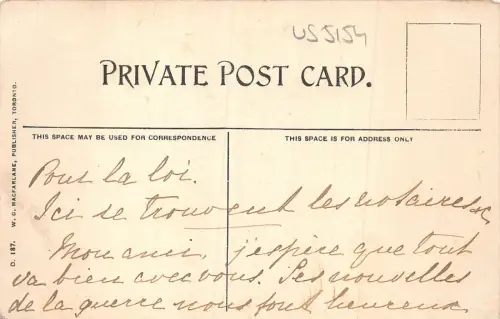 US5154
PRIVATE POST CARD.
THIS SPACE MAY BE USED FOR CORRESPONDENCE
THIS SPACE IS FOR ADDRESS ONLY
D. 187. W. G. MACFARLANE, PUBLISHER, TORONTO.
Pour la loi.
Ici se trouvent les notaires &c
Mon ami, j'espère que tout
va bien avec vous. Les nouvelles
de la guerre nous font heureux